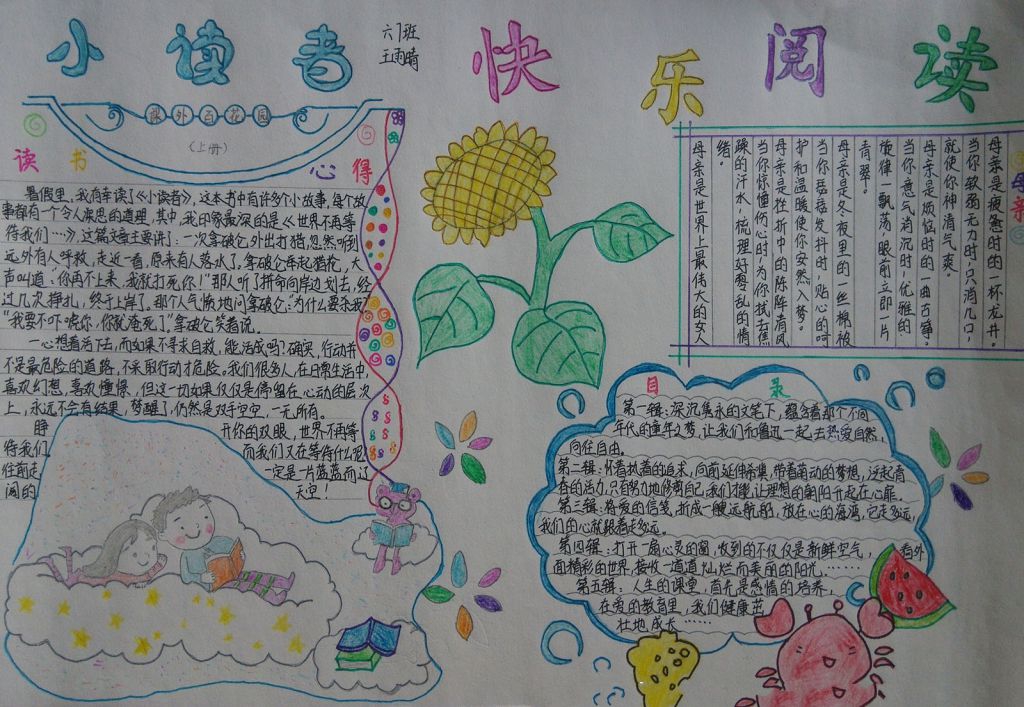 小读者
六7班
王雨晴
快乐阅读
课外百花园
(上册)
读书
心得
暑假里，我有幸读了《小读者》，这本书中有许多个小故事，每个故
事都有一个令人深思的道理，其中，我印象最深的是《世界不再等
待我们…》，这篇文章主要讲了：一次拿破仑外出打猎，忽然听到
远处有人呼救，走近一看，原来有人落水了，拿破仑举起猎枪，大
声叫道：“你再不上来，我就打死你！”那人听了拼命向岸边划去，经
过几次挣扎，终于上岸了。那个人气愤地问拿破仑：“为什么要杀我？”
“我要不吓唬你，你就淹死了。”拿破仑笑着说。
一心想着活下去，而如果不寻求自救，能活成吗？确实，行动并
不是最危险的道路，不采取行动才危险，我们很多人，在日常生活中，
喜欢幻想，喜欢憧憬，但这一切如果仅仅是停留在心动的层次
上，永远不会有结果，梦醒了，仍然是双手空空，一无所有。
睁开你的双眼，世界不再等
待我们，而我们又在等待什么呢
往前走一定是一片蓝蓝而辽
阔的天空！
母亲是疲惫时的一杯龙井，
当你软弱无力时，只消几口，
就使你神清气爽。
母亲是烦恼时的一曲古筝，
当你意气消沉时，优雅的
旋律一飘荡，眼前立即一片
青翠。
母亲是冬夜里的一丝棉被
当你瑟瑟发抖时，贴心的呵
护和温暖使你安然入梦。
母亲是挫折中的阵阵清风
当你惊惶伤心时，为你拭去焦
躁的汗水，梳理好零乱的情
绪。
母亲是世界上最伟大的女人
母亲
目录
第一辑：深沉隽永的文笔下，蕴含着那个不同
年代的童年之梦，让我们和鲁迅一起去热爱自然，
向往自由。
第二辑：怀着执着的追求，向前延伸希冀，带着萌动的梦想，泛起青
春的活力，只有努力地修剪自己，我们才懂，让理想的朝阳升起在心扉。
第三辑：将爱的信笺，折成一艘远航船，放在心的海湾，它走多远，
我们的心就跟着走多远。
第四辑：打开一扇心灵的窗，收到的不仅仅是新鲜空气，看外
面精彩的世界，接收一道道灿烂而美丽的阳光。………
第五辑：人生的课堂，首先是感情的培养，
在爱的教育里，我们健康茁
壮地成长……